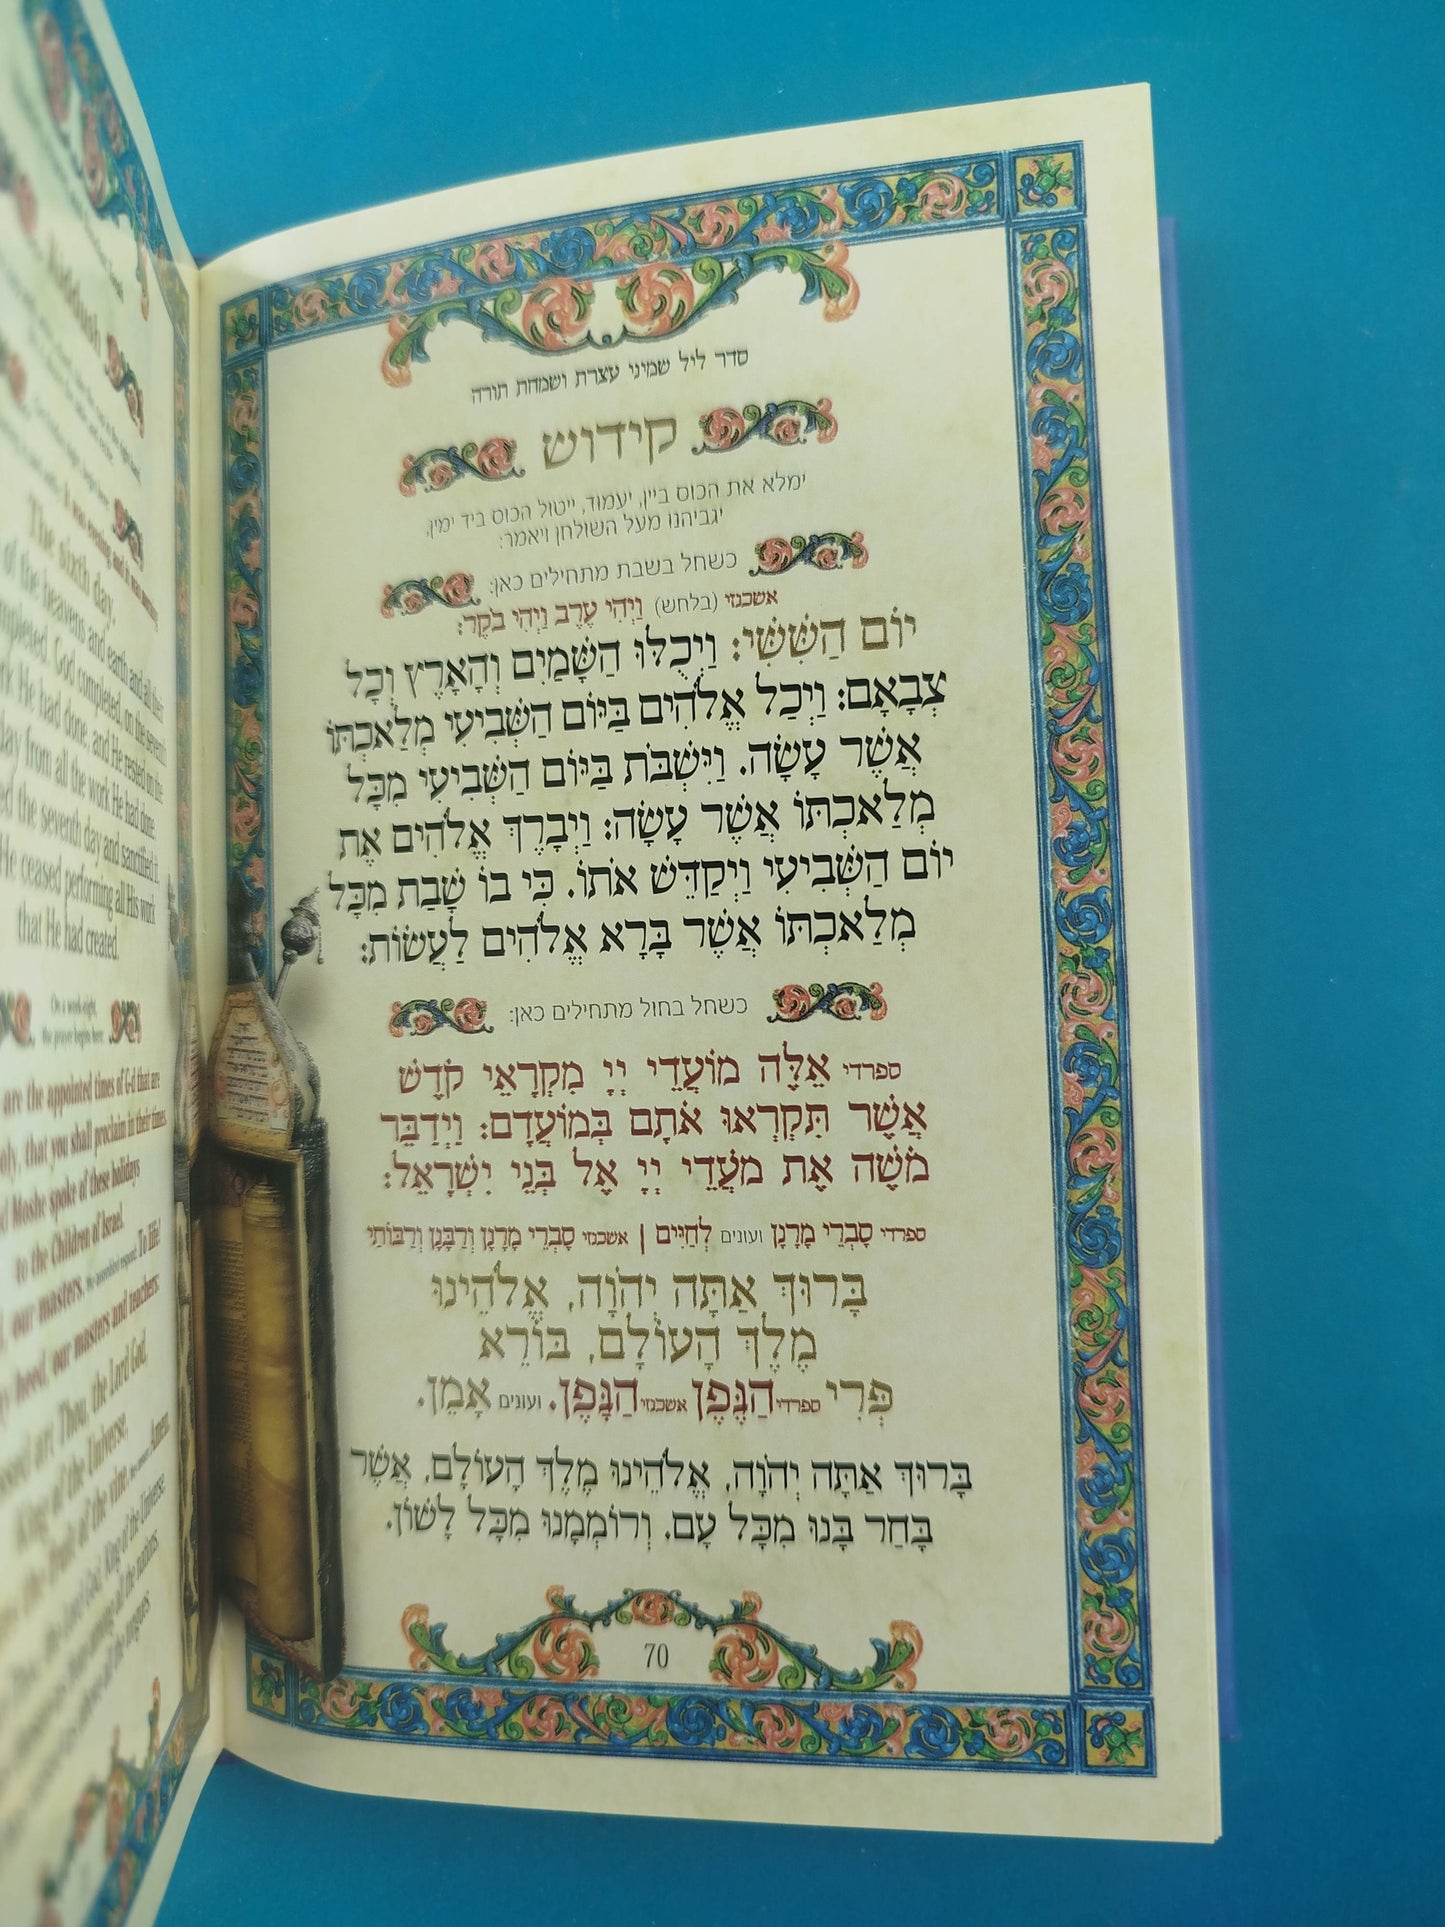 סדר ליל שמיני עצרת ושמחת תורה
קידוש
ימלא את הכוס ביין, יעמוד, ייטול הכוס ביד ימין,
יגביהנו מעל השולחן ויאמר:
כשחל בשבת מתחילים כאן:
אשכנזי (בלחש) וַיְהִי עֶרֶב וַיְהִי בֹקֶר:
יוֹם הַשִּׁשִּׁי: וַיְכֻלּוּ הַשָּׁמַיִם וְהָאָרֶץ וְכָל
צְבָאָם: וַיְכַל אֱלֹהִים בַּיּוֹם הַשְּׁבִיעִי מְלַאכְתּוֹ
אֲשֶׁר עָשָׂה. וַיִּשְׁבֹּת בַּיּוֹם הַשְּׁבִיעִי מִכָּל
מְלַאכְתּוֹ אֲשֶׁר עָשָׂה: וַיְבָרֶךְ אֱלֹהִים אֶת
יוֹם הַשְּׁבִיעִי וַיְקַדֵּשׁ אֹתוֹ. כִּי בוֹ שָׁבַת מִכָּל
מְלַאכְתּוֹ אֲשֶׁר בָּרָא אֱלֹהִים לַעֲשׂוֹת:
כשחל בחול מתחילים כאן:
ספרדי אֵלֶּה מוֹעֲדֵי יְיָ מִקְרָאֵי קֹדֶשׁ
אֲשֶׁר תִּקְרְאוּ אֹתָם בְּמוֹעֲדָם: וַיְדַבֵּר
מֹשֶׁה אֶת מֹעֲדֵי יְיָ אֶל בְּנֵי יִשְׂרָאֵל:
ספרדי סָבְרֵי מָרָנָן ועונים לְחַיִּים | אשכנזי סָבְרֵי מָרָנָן וְרַבָּנָן וְרַבּוֹתַי
בָּרוּךְ אַתָּה יְהֹוָה, אֱלֹהֵינוּ
מֶלֶךְ הָעוֹלָם, בּוֹרֵא
פְּרִי ספרדי הַגֶּפֶן אשכנזי הַגָּפֶן. ועונים אָמֵן.
בָּרוּךְ אַתָּה יְהֹוָה, אֱלֹהֵינוּ מֶלֶךְ הָעוֹלָם, אֲשֶׁר
בָּחַר בָּנוּ מִכָּל עָם. וְרוֹמְמָנוּ מִכָּל לָשׁוֹן.
70
Kiddush
The sixth day.
of the heavens and earth and all their
completed. God completed, on the seventh
work He had done, and He rested on the
day from all the work He had done.
the seventh day and sanctified it.
He ceased performing all His work
that He had created.
On a week-night,
the prayer begins here:
are the appointed times of G-d that are
holy, that you shall proclaim in their times.
Moshe spoke of these holidays
to the Children of Israel.
our masters. To life!
heed, our masters and teachers:
are Thou, the Lord God,
King of the Universe,
the fruit of the vine. Amen.